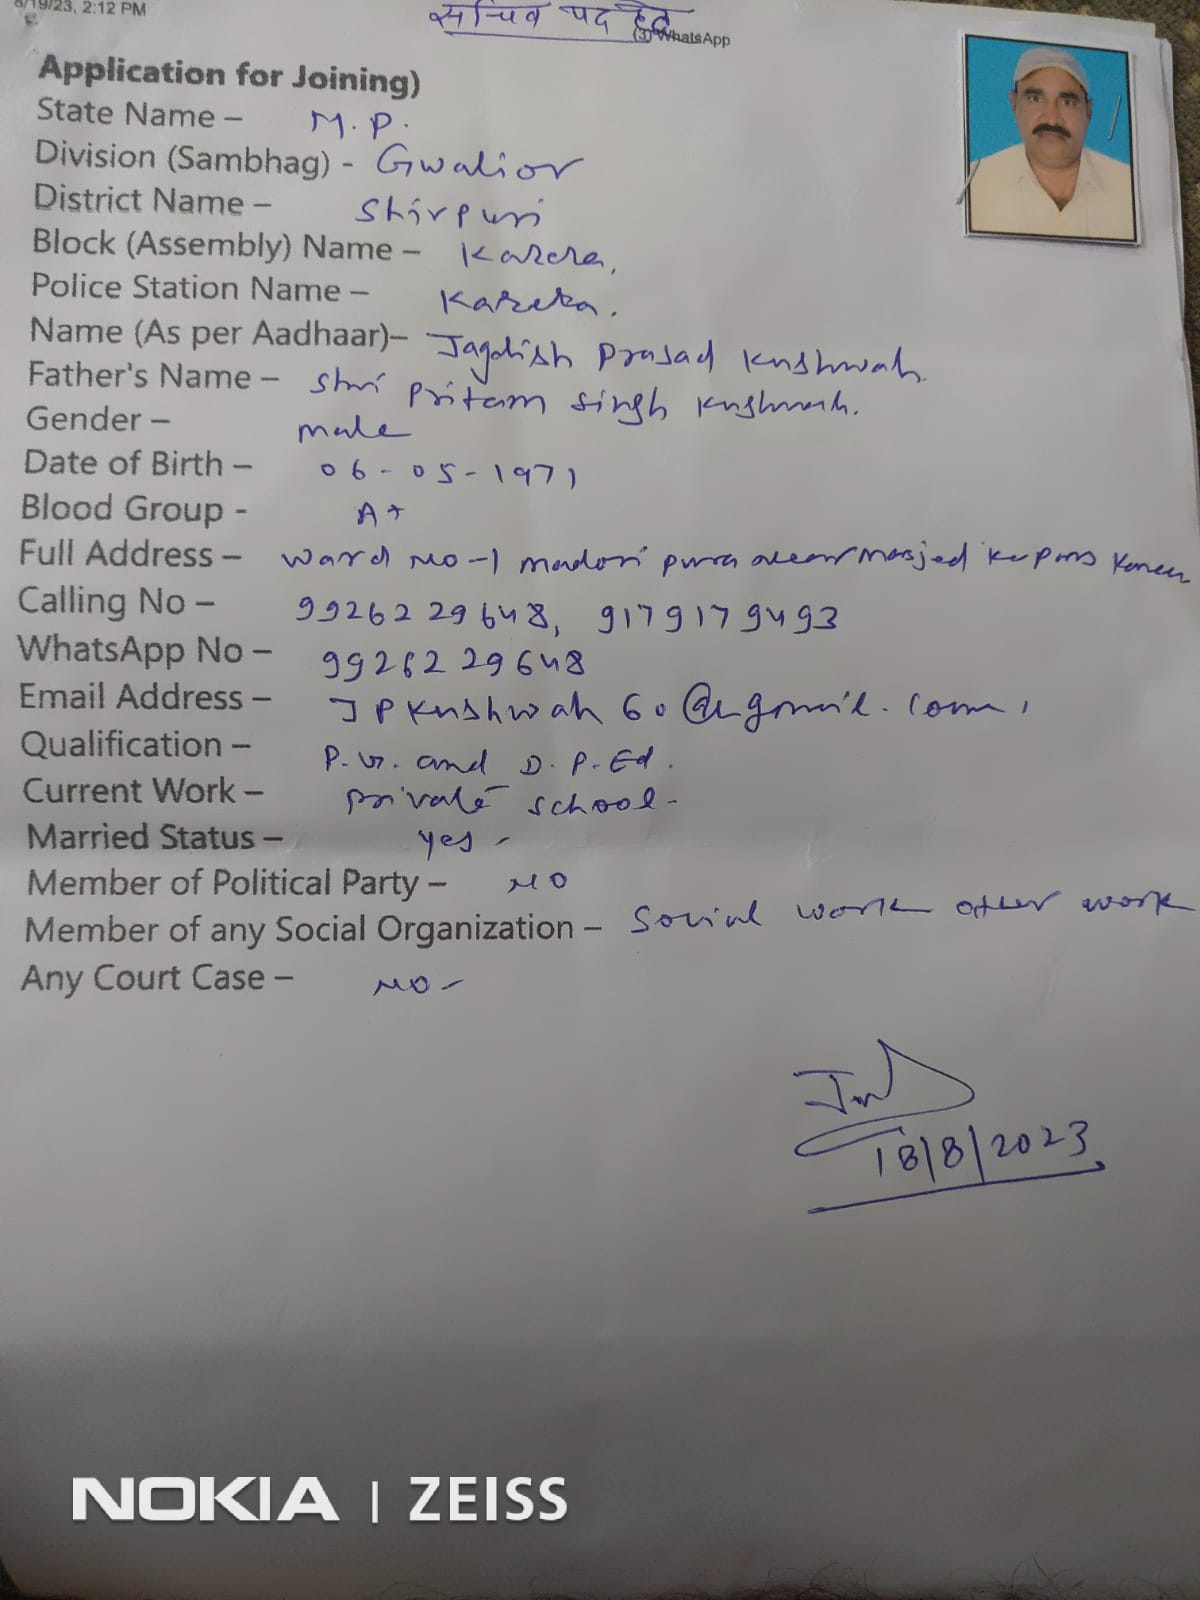 8/19/23, 2:12 PM
सचिव पद हेतु
(3) WhatsApp
Application for Joining)
State Name – M.P.
Division (Sambhag) - Gwalior
District Name – Shivpuri
Block (Assembly) Name – Karera,
Police Station Name – Karera.
Name (As per Aadhaar)– Jagdish Prasad Kushwah.
Father's Name – Shri Pritam Singh Kushwah.
Gender – male
Date of Birth – 06-05-1971
Blood Group - A+
Full Address – Ward No-1 near masjed ke pas
Calling No – 9926229648, 9179179493
WhatsApp No – 9926229648
Email Address – JPKushwah60@gmail.com,
Qualification – P.G. and D.P.Ed.
Current Work – private school-
Married Status – yes -
Member of Political Party – NO
Member of any Social Organization – Social work other work
Any Court Case – NO-
18/8/2023
NOKIA | ZEISS